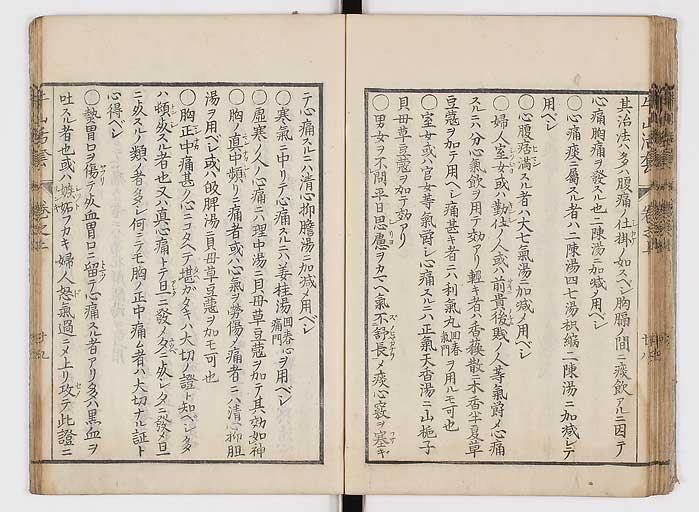 其治法ハ多ハ腹痛ノ仕掛ノ如スヘシ胸膈ノ間ニ痰飲アルニ因テ
心痛胸痛ヲ發スル也二陳湯ニ加減〆用ベシ
〇心痛痰ニ屬スル者ハ二陳湯四七湯枳縮二陳湯ニ加減〆テ
用ベシ
〇心腹痞滿スル者ハ大七氣湯ニ加減〆用ベシ
〇婦人室女或ハ勤仕ノ人或ハ前貴後賤ノ人等氣爵〆心痛
スルニ八分心氣飲ヲ用テ効アリ輕キ者ハ香蘇散ニ木香半夏草
豆蔲ヲ加テ用ベシ痛甚キ者ニハ利氣丸回春氣門ヲ用ルモ可也
〇室女或ハ官女等氣爵シ心痛スルニハ正氣天香湯ニ山梔子
貝母草豆蔲ヲ加テ効アリ
〇男女ヲ不問平日思慮ヲカサヘ氣不舒長〆痰心竅ヲ塞キ
テ心痛スルニハ清心抑膽湯ニ加減〆用ベシ
〇寒氣ニ中リテ心痛スルニハ姜桂湯回春心痛門ヲ用ベシ
〇虚寒ノ人ノ心痛ニハ理中湯ニ貝母草豆蔲ヲ加テ其効如神
〇胸ノ真中頻リニ痛者或ハ心氣ヲ勞傷〆痛者ニハ清心抑胆
湯ヲ用ベシ或ハ皈脾湯ニ貝母草豆蔲ヲ加モ可也
〇胸正中痛甚ク心ニコタヘテ堪ガタキハ大切ノ證ト知ベシタタ
ハ頓死スル者也又ハ真心痛トテ旦ニ發ノタニ死シタニ發〆旦
ニ死スルノ類ノ者多シ何ニテモ胸ノ正中痛ム者ハ大切ナル証ト
心得ベシ
〇熱胃口ヲ傷テ死血胃口ニ留テ心痛スル者アリタタハ黒血ヲ
吐スル者也或ハ嫉妬フカキ婦人怒氣過ニ〆上リ攻テ此證ニ